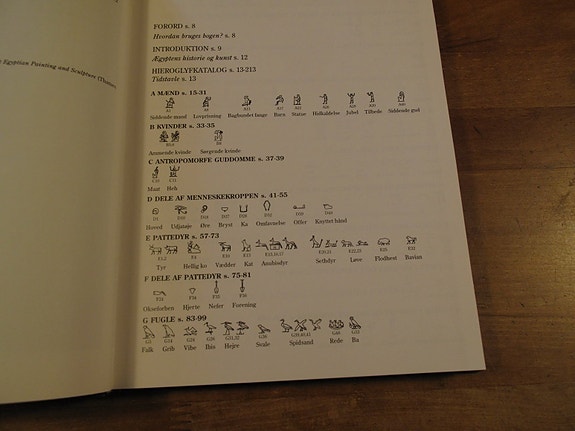 Egyptian Painting and Sculpture (Thames)
FORORD s. 8
Hvordan bruges bogen? s. 8
INTRODUKTION s. 9
Ægyptens historie og kunst s. 12
HIEROGLYFKATALOG s. 13-213
Tidstavle s. 13
A MÆND s. 15-31
Siddende mand Lovprisning Bagbundet fange Barn Statue Hidkaldelse Jubel Tilbede Siddende gud
B KVINDER s. 33-35
Ammende kvinde Sørgende kvinde
C ANTROPOMORFE GUDDOMME s. 37-39
C10 C11
Maat Heh
D DELE AF MENNESKEKROPPEN s. 41-55
Hoved Udjatøje Øre Bryst Ka Omfavnelse Offer Knyttet hånd
E PATTEDYR s. 57-73
Tyr Hellig ko Vædder Kat Anubisdyr Sethdyr Løve Flodhest Bavian
F DELE AF PATTEDYR s. 75-81
F24 F34 F35 F36
Okseforben Hjerte Nefer Forening
G FUGLE s. 83-99
Falk Grib Vibe Ibis Hejre Svale Spidsand Rede Ba